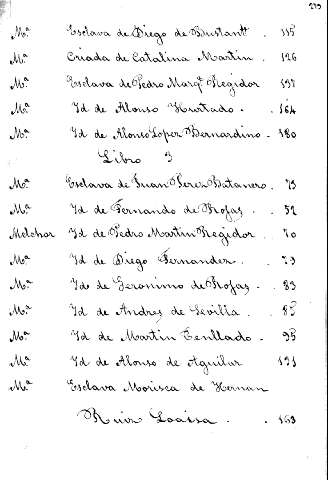 Mª Esclava de Diego de Bustantᵉ . 115
Mª Criada de Catalina Martin . 126
Mª Esclava de Pedro Marqˢ Regidor
Mª Yd de Alonso Hurtado . 164
Mª Yd de Alonso Lopez Bernardino . 180
Libro 3
Mª Esclava de Juan Perez Batanero . 73
Mª Yd de Fernando de Rojas . 52
Melchor Yd de Pedro Martin Regidor . 70
Mª Yd de Diego Fernandez . 79
Mª Yd de Geronimo de Rojas . 83
Mª Yd de Andres de Sevilla .
Mª Yd de Martin Tenllado . 95
Mª Yd de Alonso de Aguilar
Mª Esclava Morisca de Hernan
Ruiz Loaisa . . 163